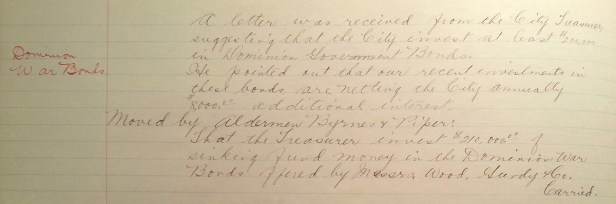 A letter was received from the City Treasurer
suggesting that the City invest at least
in Dominion Government Bonds.
Dominion
War Bonds.
He pointed out that our recent investments in
these bonds are netting the City annually
$8000.00 additional interest.
Moved by Aldermen Byrnes & Piper:
That the Treasurer invest $210,000.00 of
sinking fund money in the Dominion War
Bonds offered by Messrs Wood, Gundy & Co.
Carried.